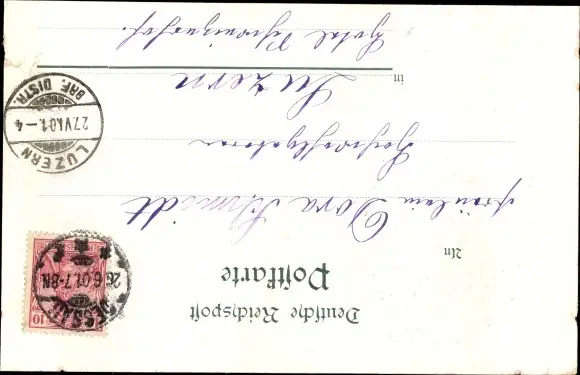 Deutsche Reichspost
Postkarte
An
Fräulein Dora Schmidt
in Luzern
Hotel Schweizerhof.
DESSAU
26.6.01.7-8N.
10
LUZERN
27.VI.01.-4
BRF. DISTR.